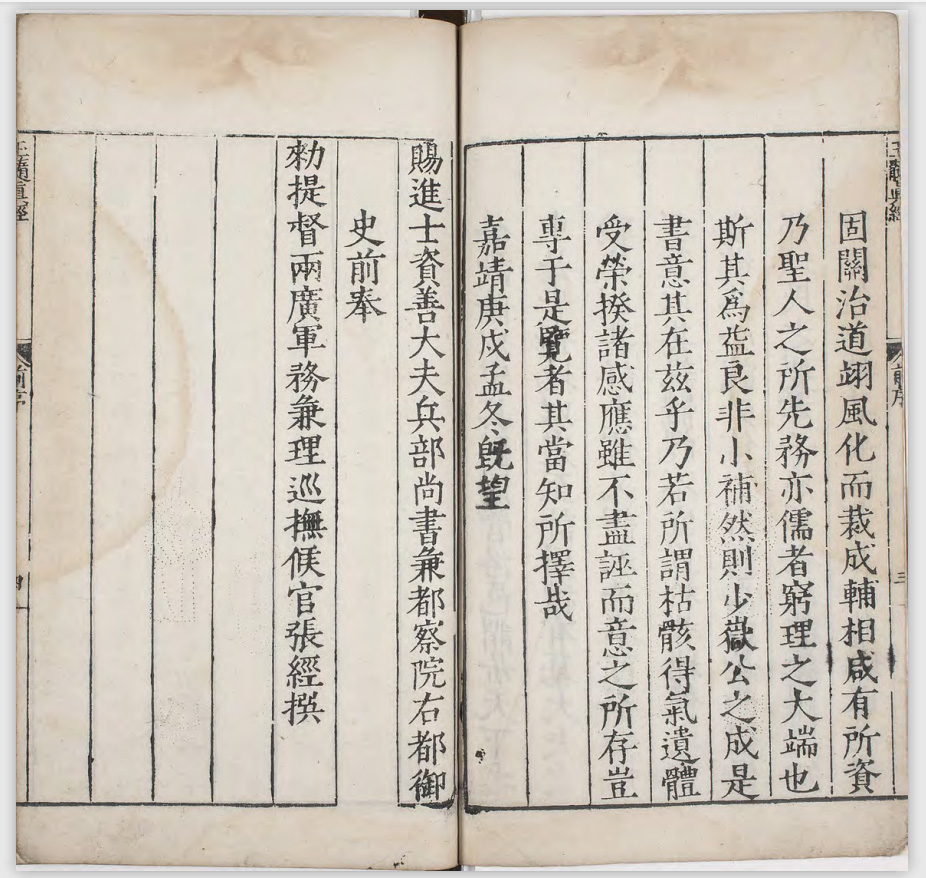 固關治道翊風化而裁成輔相咸有所資
乃聖人之所先務亦儒者窮理之大端也
斯其為益良非小補然則少嶽公之成是
書意其在茲乎乃若所謂枯骸得氣遺體
受榮揆諸感應雖不盡誣而意之所存豈
專于是覽者其當知所擇哉
嘉靖庚戌孟冬既望
賜進士資善大夫兵部尚書兼都察院右都御
史前奉
勑提督兩廣軍務兼理巡撫候官張經撰
玉髓真經
前序